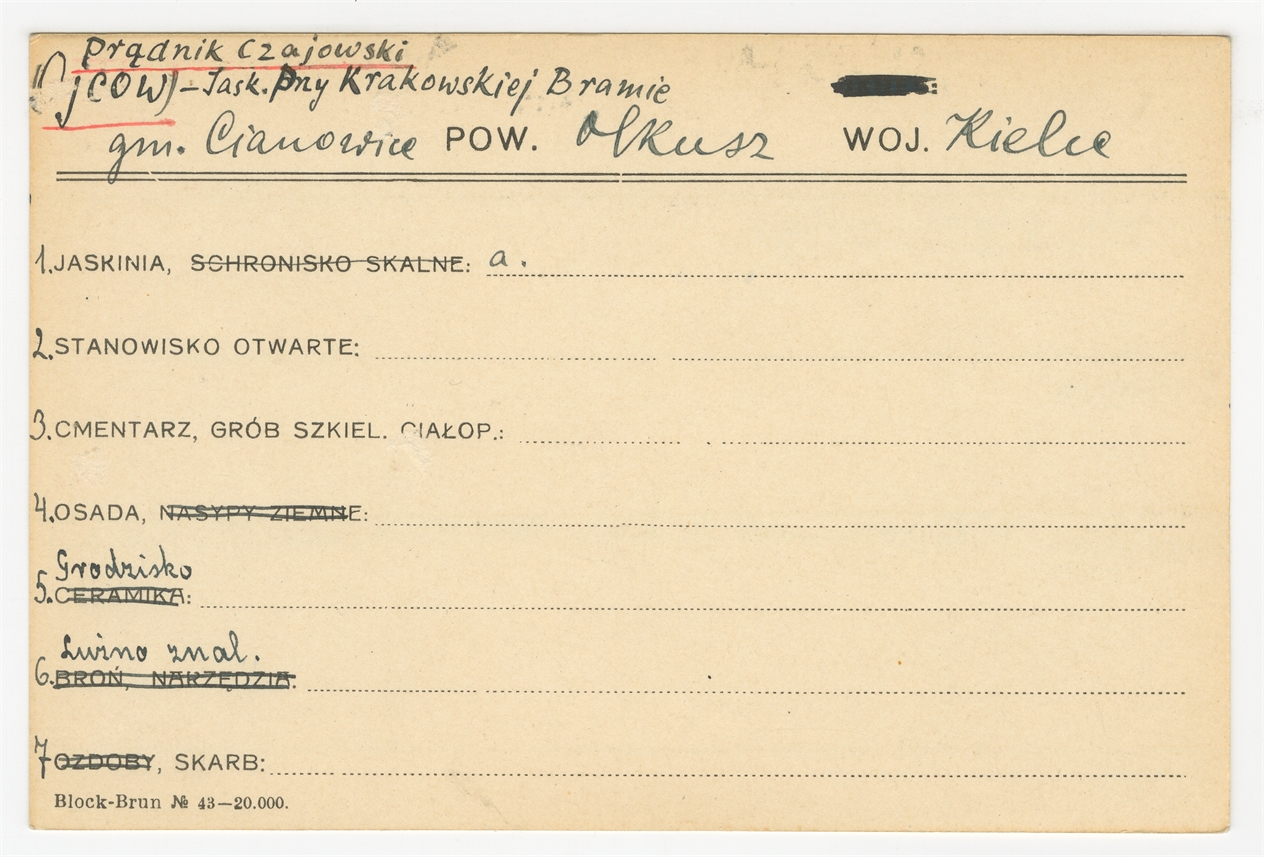 Prądnik Czajowski
(OJCOW) – Jask. przy Krakowskiej Bramie
gm. Cianowice POW. Olkusz WOJ. Kielce
1. JASKINIA, SCHRONISKO SKALNE: a.
2. STANOWISKO OTWARTE:
3. CMENTARZ, GRÓB SZKIEL. CIAŁOP.:
4. OSADA, NASYPY ZIEMNE:
Grodzisko
5. CERAMIKA:
Luźno znal.
6. BROŃ, NARZĘDZIA:
7 OZDOBY, SKARB:
Block-Brun № 43—20.000.